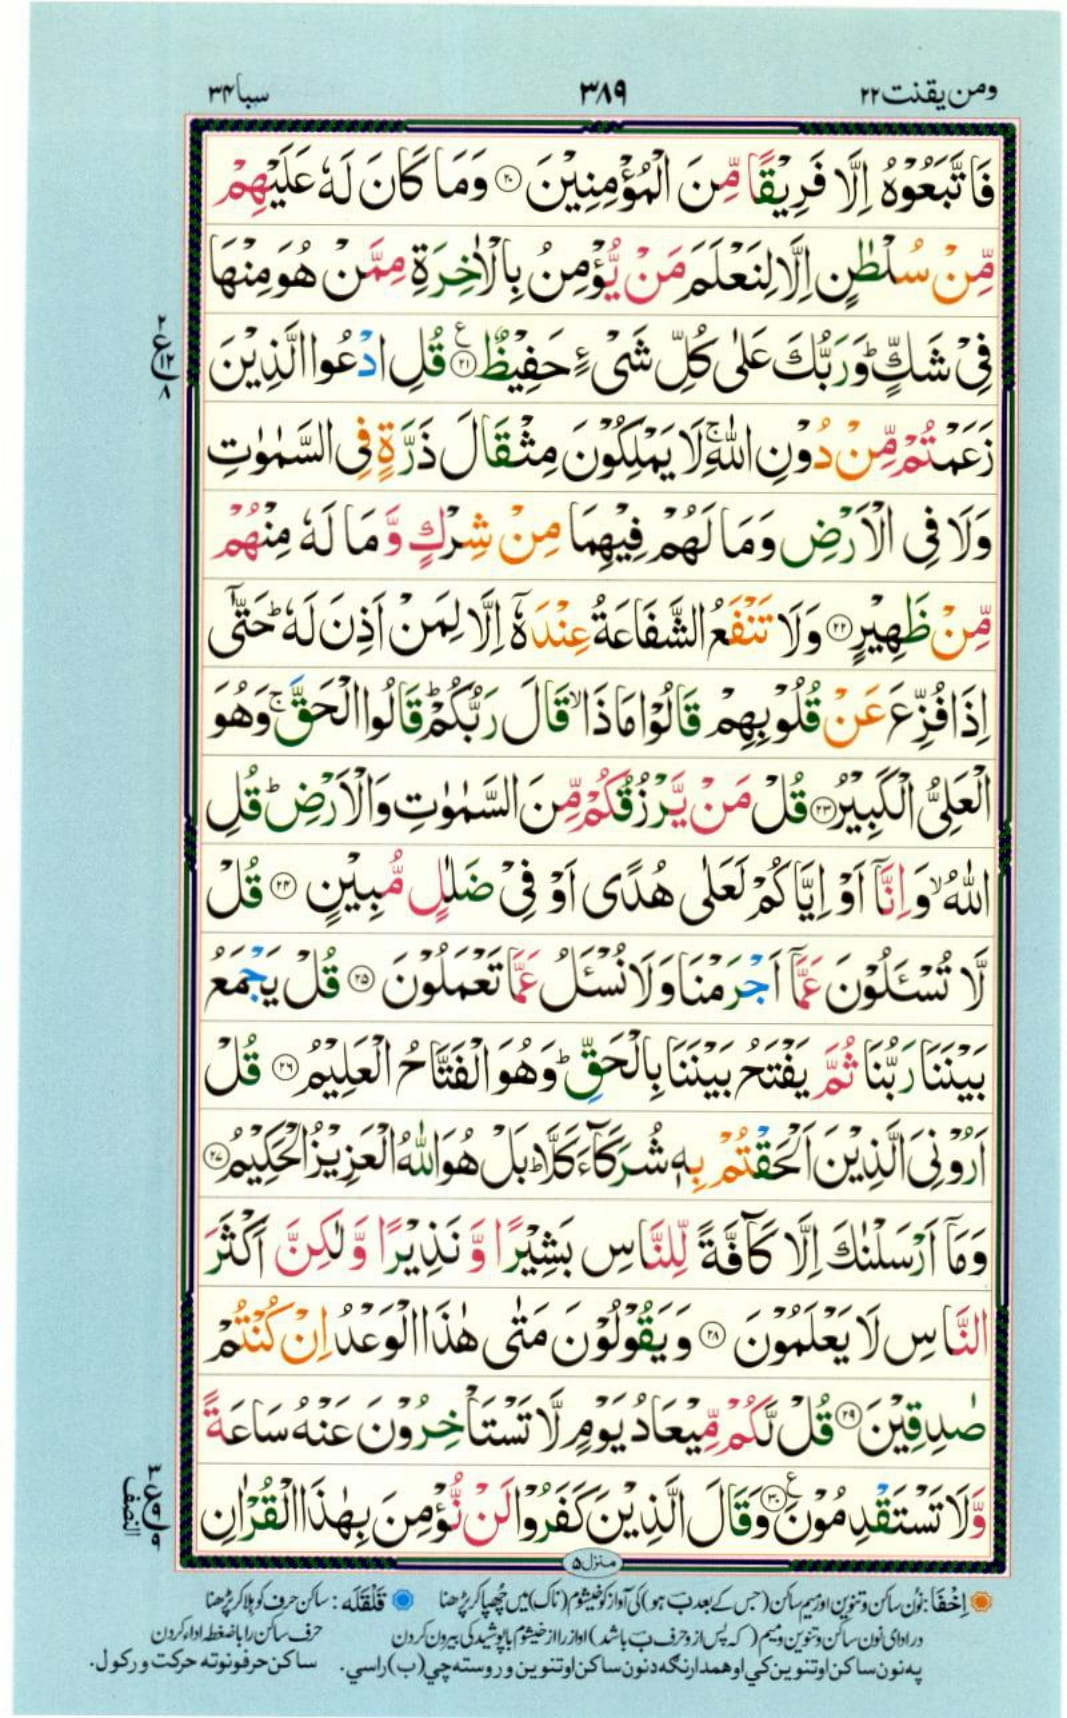 ومن یقنت ۲۲
۳۸۹
سبا ۳۴
فَاتَّبَعُوْهُ اِلَّا فَرِیْقًا مِّنَ الْمُؤْمِنِیْنَ ۟۲۰ وَمَا كَانَ لَهٗ عَلَیْهِمْ
مِّنْ سُلْطٰنٍ اِلَّا لِنَعْلَمَ مَنْ یُّؤْمِنُ بِالْاٰخِرَةِ مِمَّنْ هُوَ مِنْهَا
فِیْ شَكٍّ ؕ وَرَبُّكَ عَلٰی كُلِّ شَیْءٍ حَفِیْظٌ ۟۲۱ قُلِ ادْعُوا الَّذِیْنَ
زَعَمْتُمْ مِّنْ دُوْنِ اللّٰهِ ۚ لَا یَمْلِكُوْنَ مِثْقَالَ ذَرَّةٍ فِی السَّمٰوٰتِ
وَلَا فِی الْاَرْضِ وَمَا لَهُمْ فِیْهِمَا مِنْ شِرْكٍ وَّمَا لَهٗ مِنْهُمْ
مِّنْ ظَهِیْرٍ ۟۲۲ وَلَا تَنْفَعُ الشَّفَاعَةُ عِنْدَهٗۤ اِلَّا لِمَنْ اَذِنَ لَهٗ ؕ حَتّٰۤی
اِذَا فُزِّعَ عَنْ قُلُوْبِهِمْ قَالُوْا مَاذَا ۙ قَالَ رَبُّكُمْ ؕ قَالُوا الْحَقَّ ۚ وَهُوَ
الْعَلِیُّ الْكَبِیْرُ ۟۲۳ قُلْ مَنْ یَّرْزُقُكُمْ مِّنَ السَّمٰوٰتِ وَالْاَرْضِ ؕ قُلِ
اللّٰهُ ۙ وَاِنَّاۤ اَوْ اِیَّاكُمْ لَعَلٰی هُدًی اَوْ فِیْ ضَلٰلٍ مُّبِیْنٍ ۟۲۴ قُلْ
لَّا تُسْـَٔلُوْنَ عَمَّاۤ اَجْرَمْنَا وَلَا نُسْـَٔلُ عَمَّا تَعْمَلُوْنَ ۟۲۵ قُلْ یَجْمَعُ
بَیْنَنَا رَبُّنَا ثُمَّ یَفْتَحُ بَیْنَنَا بِالْحَقِّ ؕ وَهُوَ الْفَتَّاحُ الْعَلِیْمُ ۟۲۶ قُلْ
اَرُوْنِیَ الَّذِیْنَ اَلْحَقْتُمْ بِهٖ شُرَكَآءَ كَلَّا ؕ بَلْ هُوَ اللّٰهُ الْعَزِیْزُ الْحَكِیْمُ ۟۲۷
وَمَاۤ اَرْسَلْنٰكَ اِلَّا كَآفَّةً لِّلنَّاسِ بَشِیْرًا وَّنَذِیْرًا وَّلٰكِنَّ اَكْثَرَ
النَّاسِ لَا یَعْلَمُوْنَ ۟۲۸ وَیَقُوْلُوْنَ مَتٰی هٰذَا الْوَعْدُ اِنْ كُنْتُمْ
صٰدِقِیْنَ ۟۲۹ قُلْ لَّكُمْ مِّیْعَادُ یَوْمٍ لَّا تَسْتَاْخِرُوْنَ عَنْهُ سَاعَةً
وَّلَا تَسْتَقْدِمُوْنَ ۟۳۰ وَقَالَ الَّذِیْنَ كَفَرُوْا لَنْ نُّؤْمِنَ بِهٰذَا الْقُرْاٰنِ
۲ ع ۱۲ ۸
۳ ع ۹ ۹
النصف
منزل ۵
اِخْفَا : نون ساکن و تنوین اور میم ساکن (جس کے بعد ب ہو) کی آواز کو خیشوم (ناک) میں چھپا کر پڑھنا
قَلْقَلَه : ساکن حرف کو ہلا کر پڑھنا
در ادای نون ساکن و تنوین و میم (که پس از و حرف ب باشد) اواز را از خیشوم با پوشیدگی بیرون کردن
حرف ساکن را با ضغطه اداء کردن
په نون ساکن او تنوین کي او همدارنګه د نون ساکن او تنوین وروسته چي (ب) راسي.
ساکن حرفونو ته حرکت ورکول.